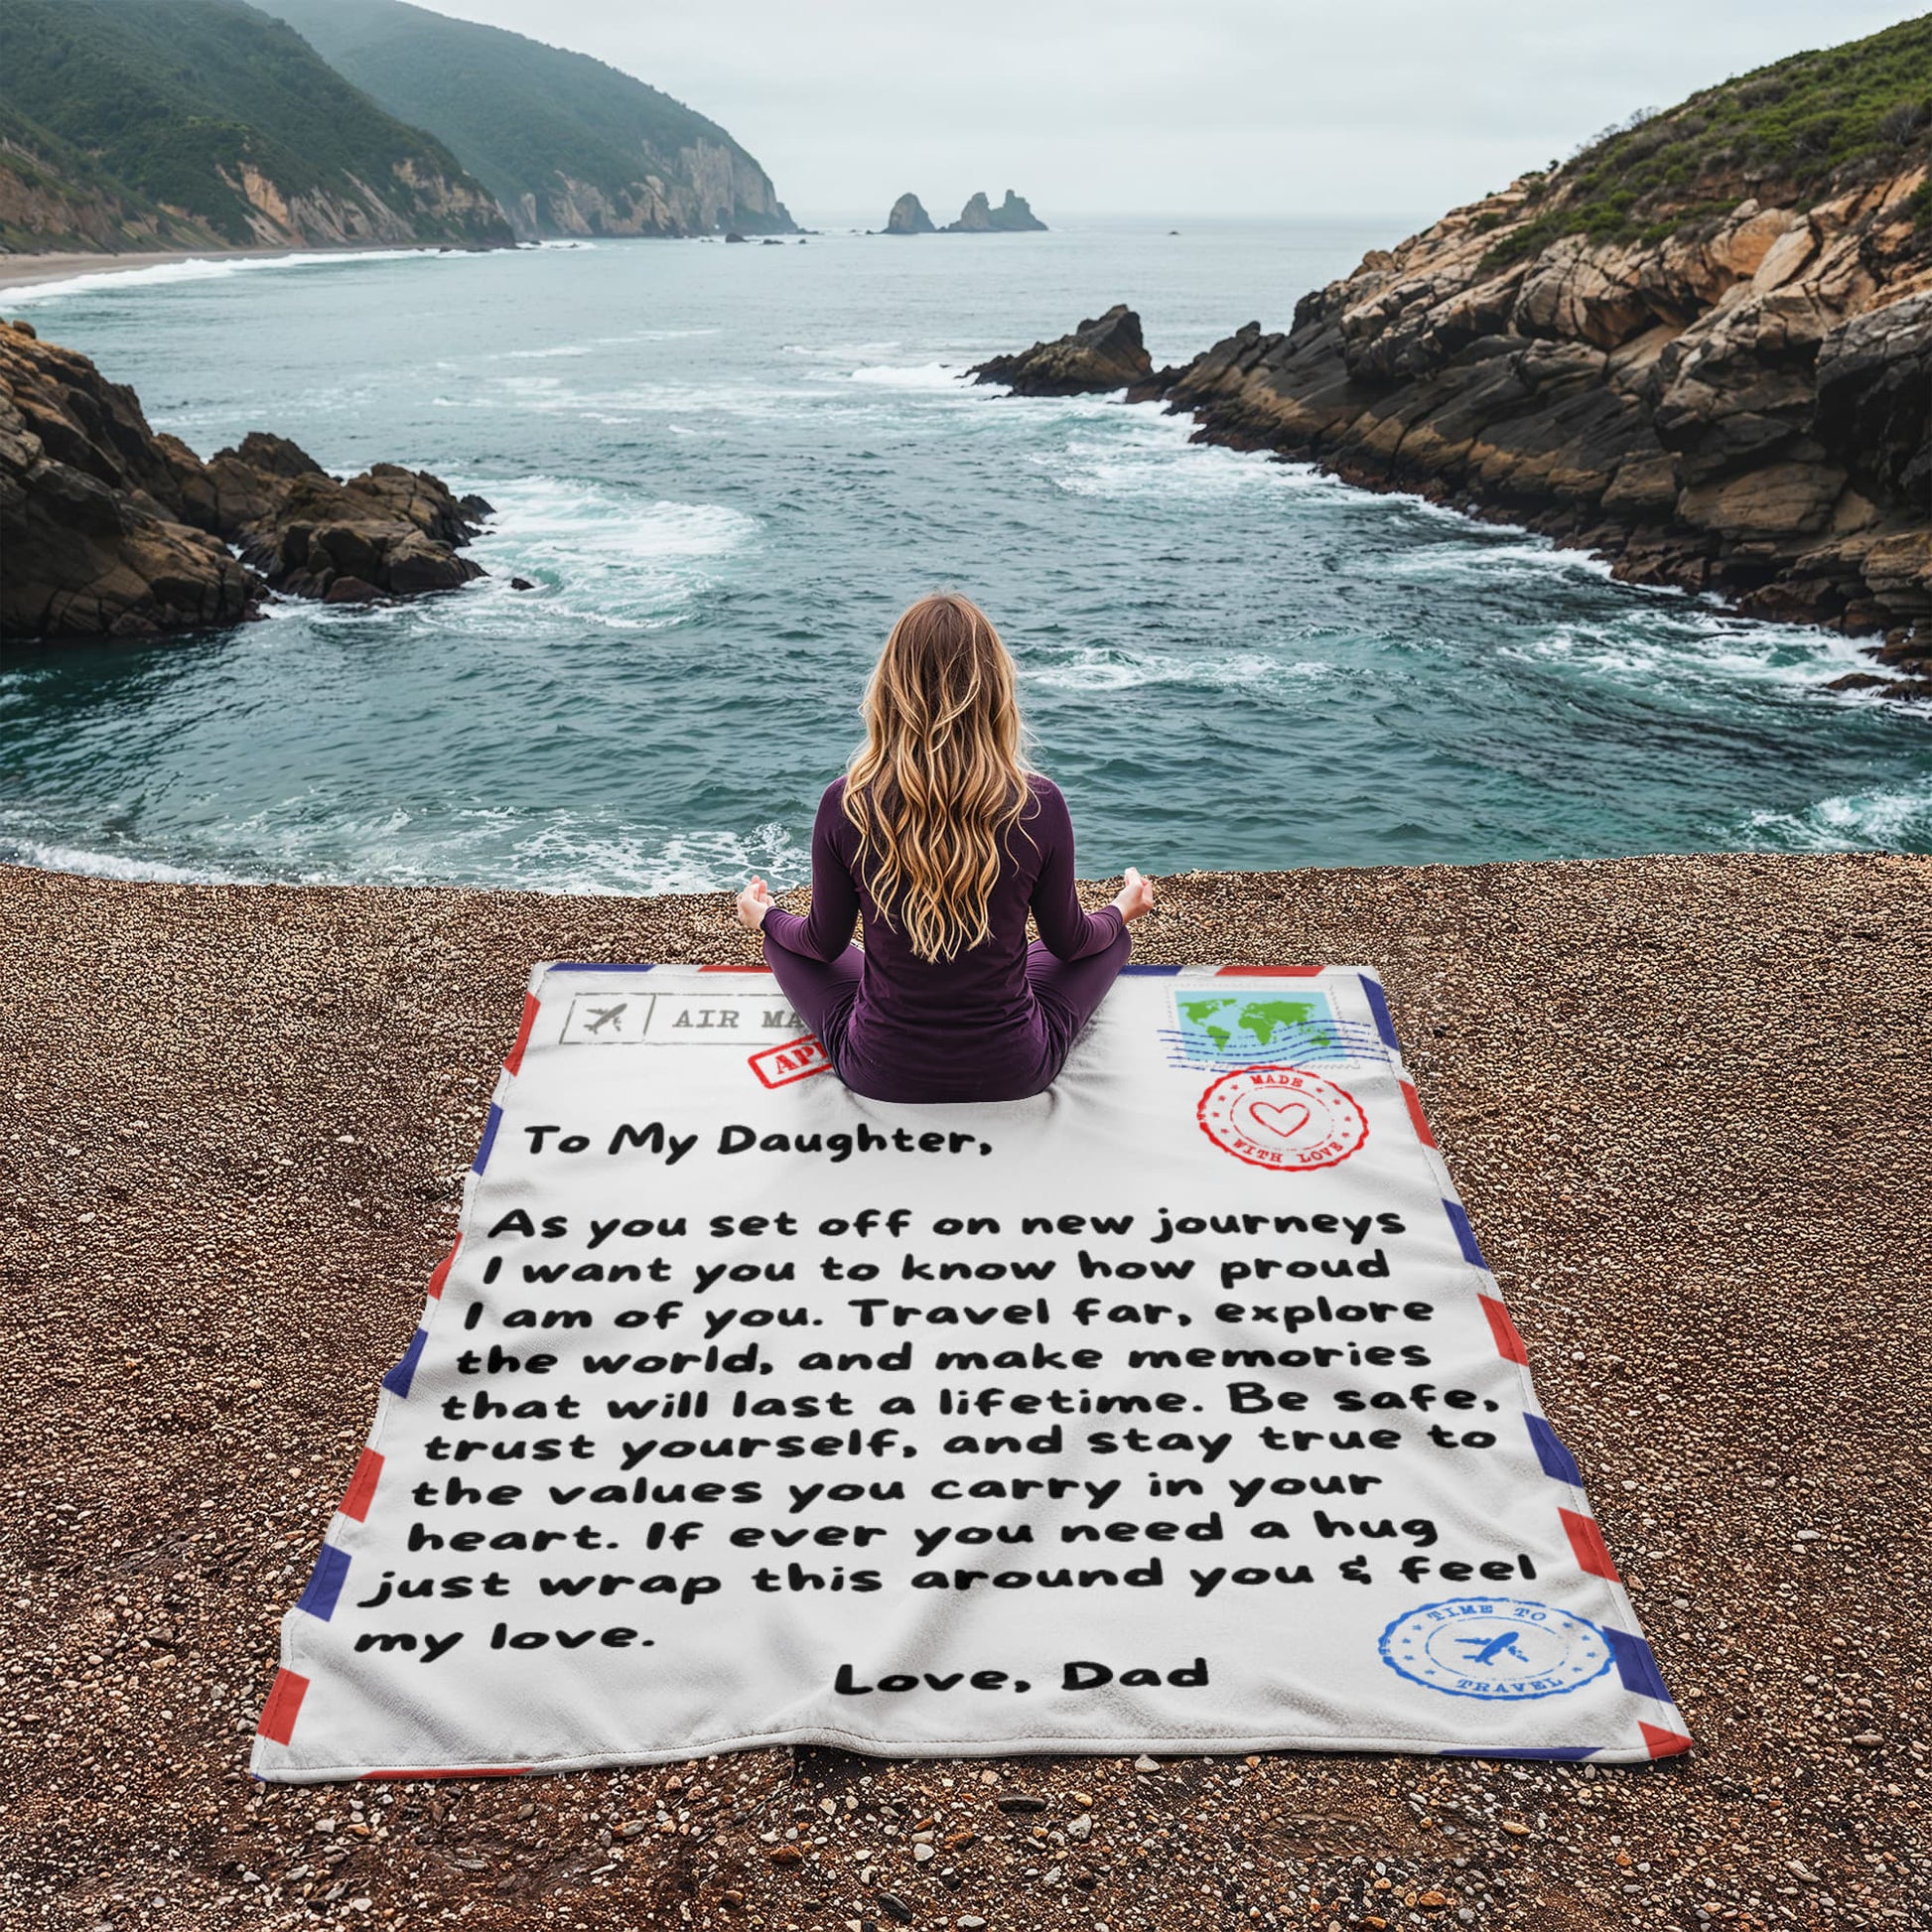 AIR
MADE
WITH LOVE
To My Daughter,
As you set off on new journeys
I want you to know how proud
I am of you. Travel far, explore
the world, and make memories
that will last a lifetime. Be safe,
trust yourself, and stay true to
the values you carry in your
heart. If ever you need a hug
just wrap this around you & feel
my love.
Love, Dad
TIME TO
TRAVEL